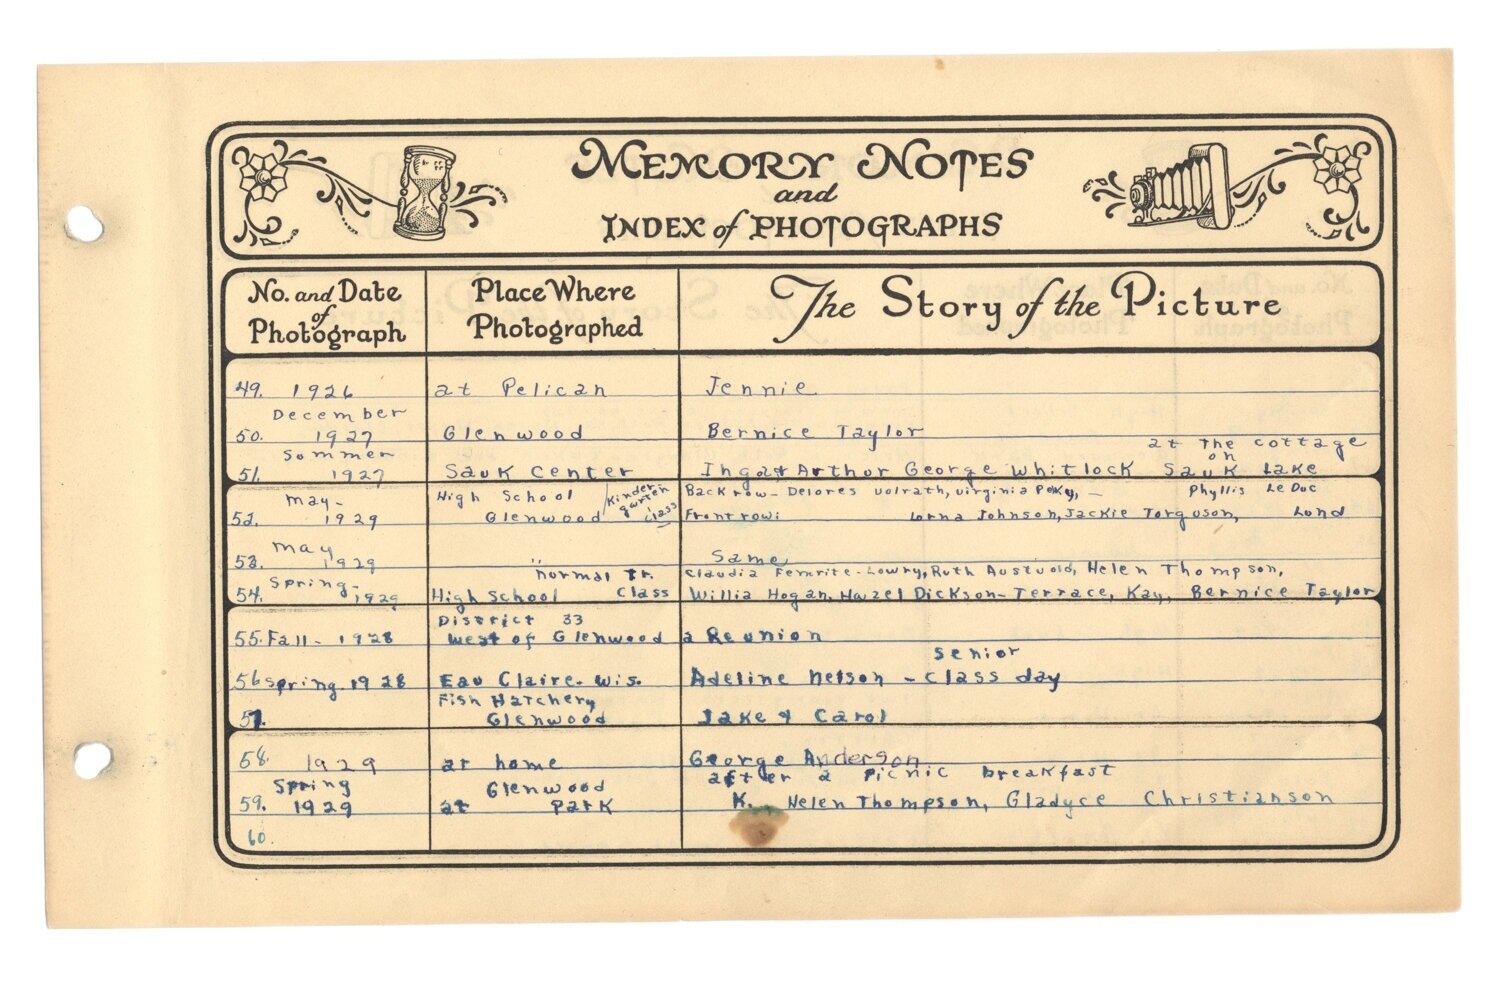 MEMORY NOTES
and
INDEX of PHOTOGRAPHS
No. and Date of Photograph
Place Where Photographed
The Story of the Picture
49. 1926 at Pelican Jennie
December
50. 1927 Glenwood Bernice Taylor
at the cottage
Sommer on
51. 1927 Sauk Center Inga & Arthur George Whitlock Sauk Lake
May - High School Kinder garten class Back row - Delores Volrath, Virginia Peky, - Phyllis Le Duc
52. 1929 Glenwood Front row: Lorna Johnson, Jackie Torguson, Lund
May
53. 1929 " Same
Spring - Normal Tr. Claudia Femrite - Lowry, Ruth Austvold, Helen Thompson,
54. 1929 High School Class Willia Hogan, Hazel Dickson - Terrace, Kay, Bernice Taylor
District 33
55. Fall - 1928 West of Glenwood a Reunion
Senior
56 Spring. 1928 Eau Claire. Wis. Adeline Nelson - Class day
Fish Hatchery
57. Glenwood Jake & Carol
58. 1929 at home George Anderson
Spring Glenwood after a picnic breakfast
59. 1929 at Park K. Helen Thompson, Gladyce Christianson
60.